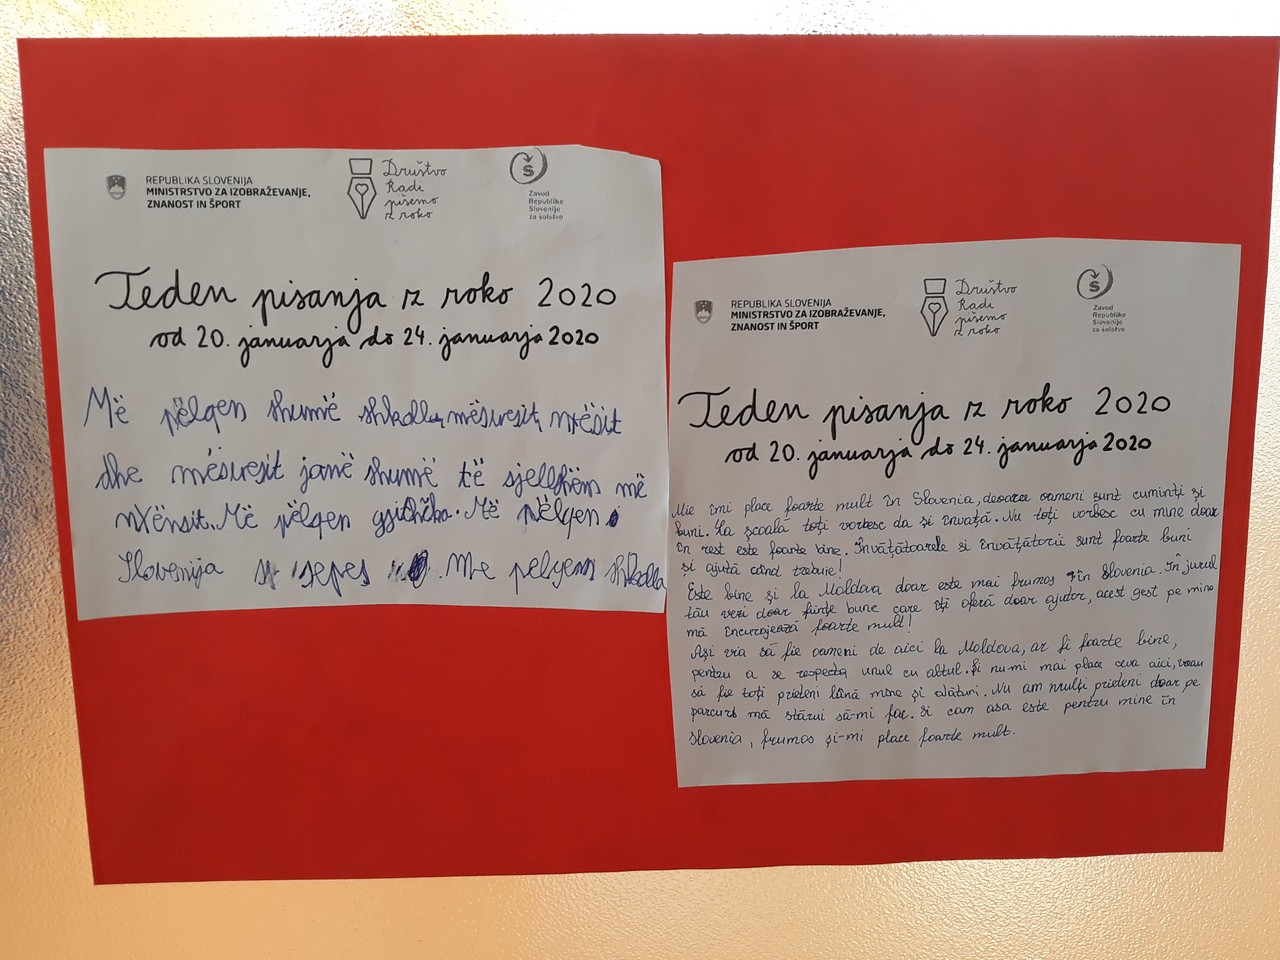 REPUBLIKA SLOVENIJA
MINISTRSTVO ZA IZOBRAŽEVANJE,
ZNANOST IN ŠPORT
Društvo
Radi
pišemo
z roko
Zavod
Republike
Slovenije
za šolstvo
Teden pisanja z roko 2020
od 20. januarja do 24. januarja 2020
Më pëlqen shumë shkolla, mësuesit, nxësit
dhe mésuesit janë shumë të sjellshëm më
nxënsit. Më pëlqen gjithçka. Më pëlqen
Slovenija si sepes. Me pelqem shkolla
REPUBLIKA SLOVENIJA
MINISTRSTVO ZA IZOBRAŽEVANJE,
ZNANOST IN ŠPORT
Društvo
Radi
pišemo
z roko
Zavod
Republike
Slovenije
za šolstvo
Teden pisanja z roko 2020
od 20. januarja do 24. januarja 2020
Mie îmi place foarte mult în Slovenia, deoarece oameni sunt cuminți și
buni. La școală toți vorbesc da și învață. Nu toți vorbesc cu mine doar
în rest este foarte bine. Învățătoarele si învățătorii sunt foarte buni
și ajută când trebuie!
Este bine și la Moldova doar este mai frumos în Slovenia. În jurul
tău vezi doar ființe bune care îți oferă doar ajutor, acest gest pe mine
mă încurajează foarte mult!
Ași vria să fie oameni de aici la Moldova, ar fi foarte bine,
pentru a se respecta unul cu altul. Și nu-mi mai place ceva aici, vreau
să fie toți prieteni lână mine și alături. Nu am mulți prieteni doar pe
parcurs mă stărui să-mi fac. Si cam asa este pentru mine în
Slovenia, frumos și-mi place foarte mult.